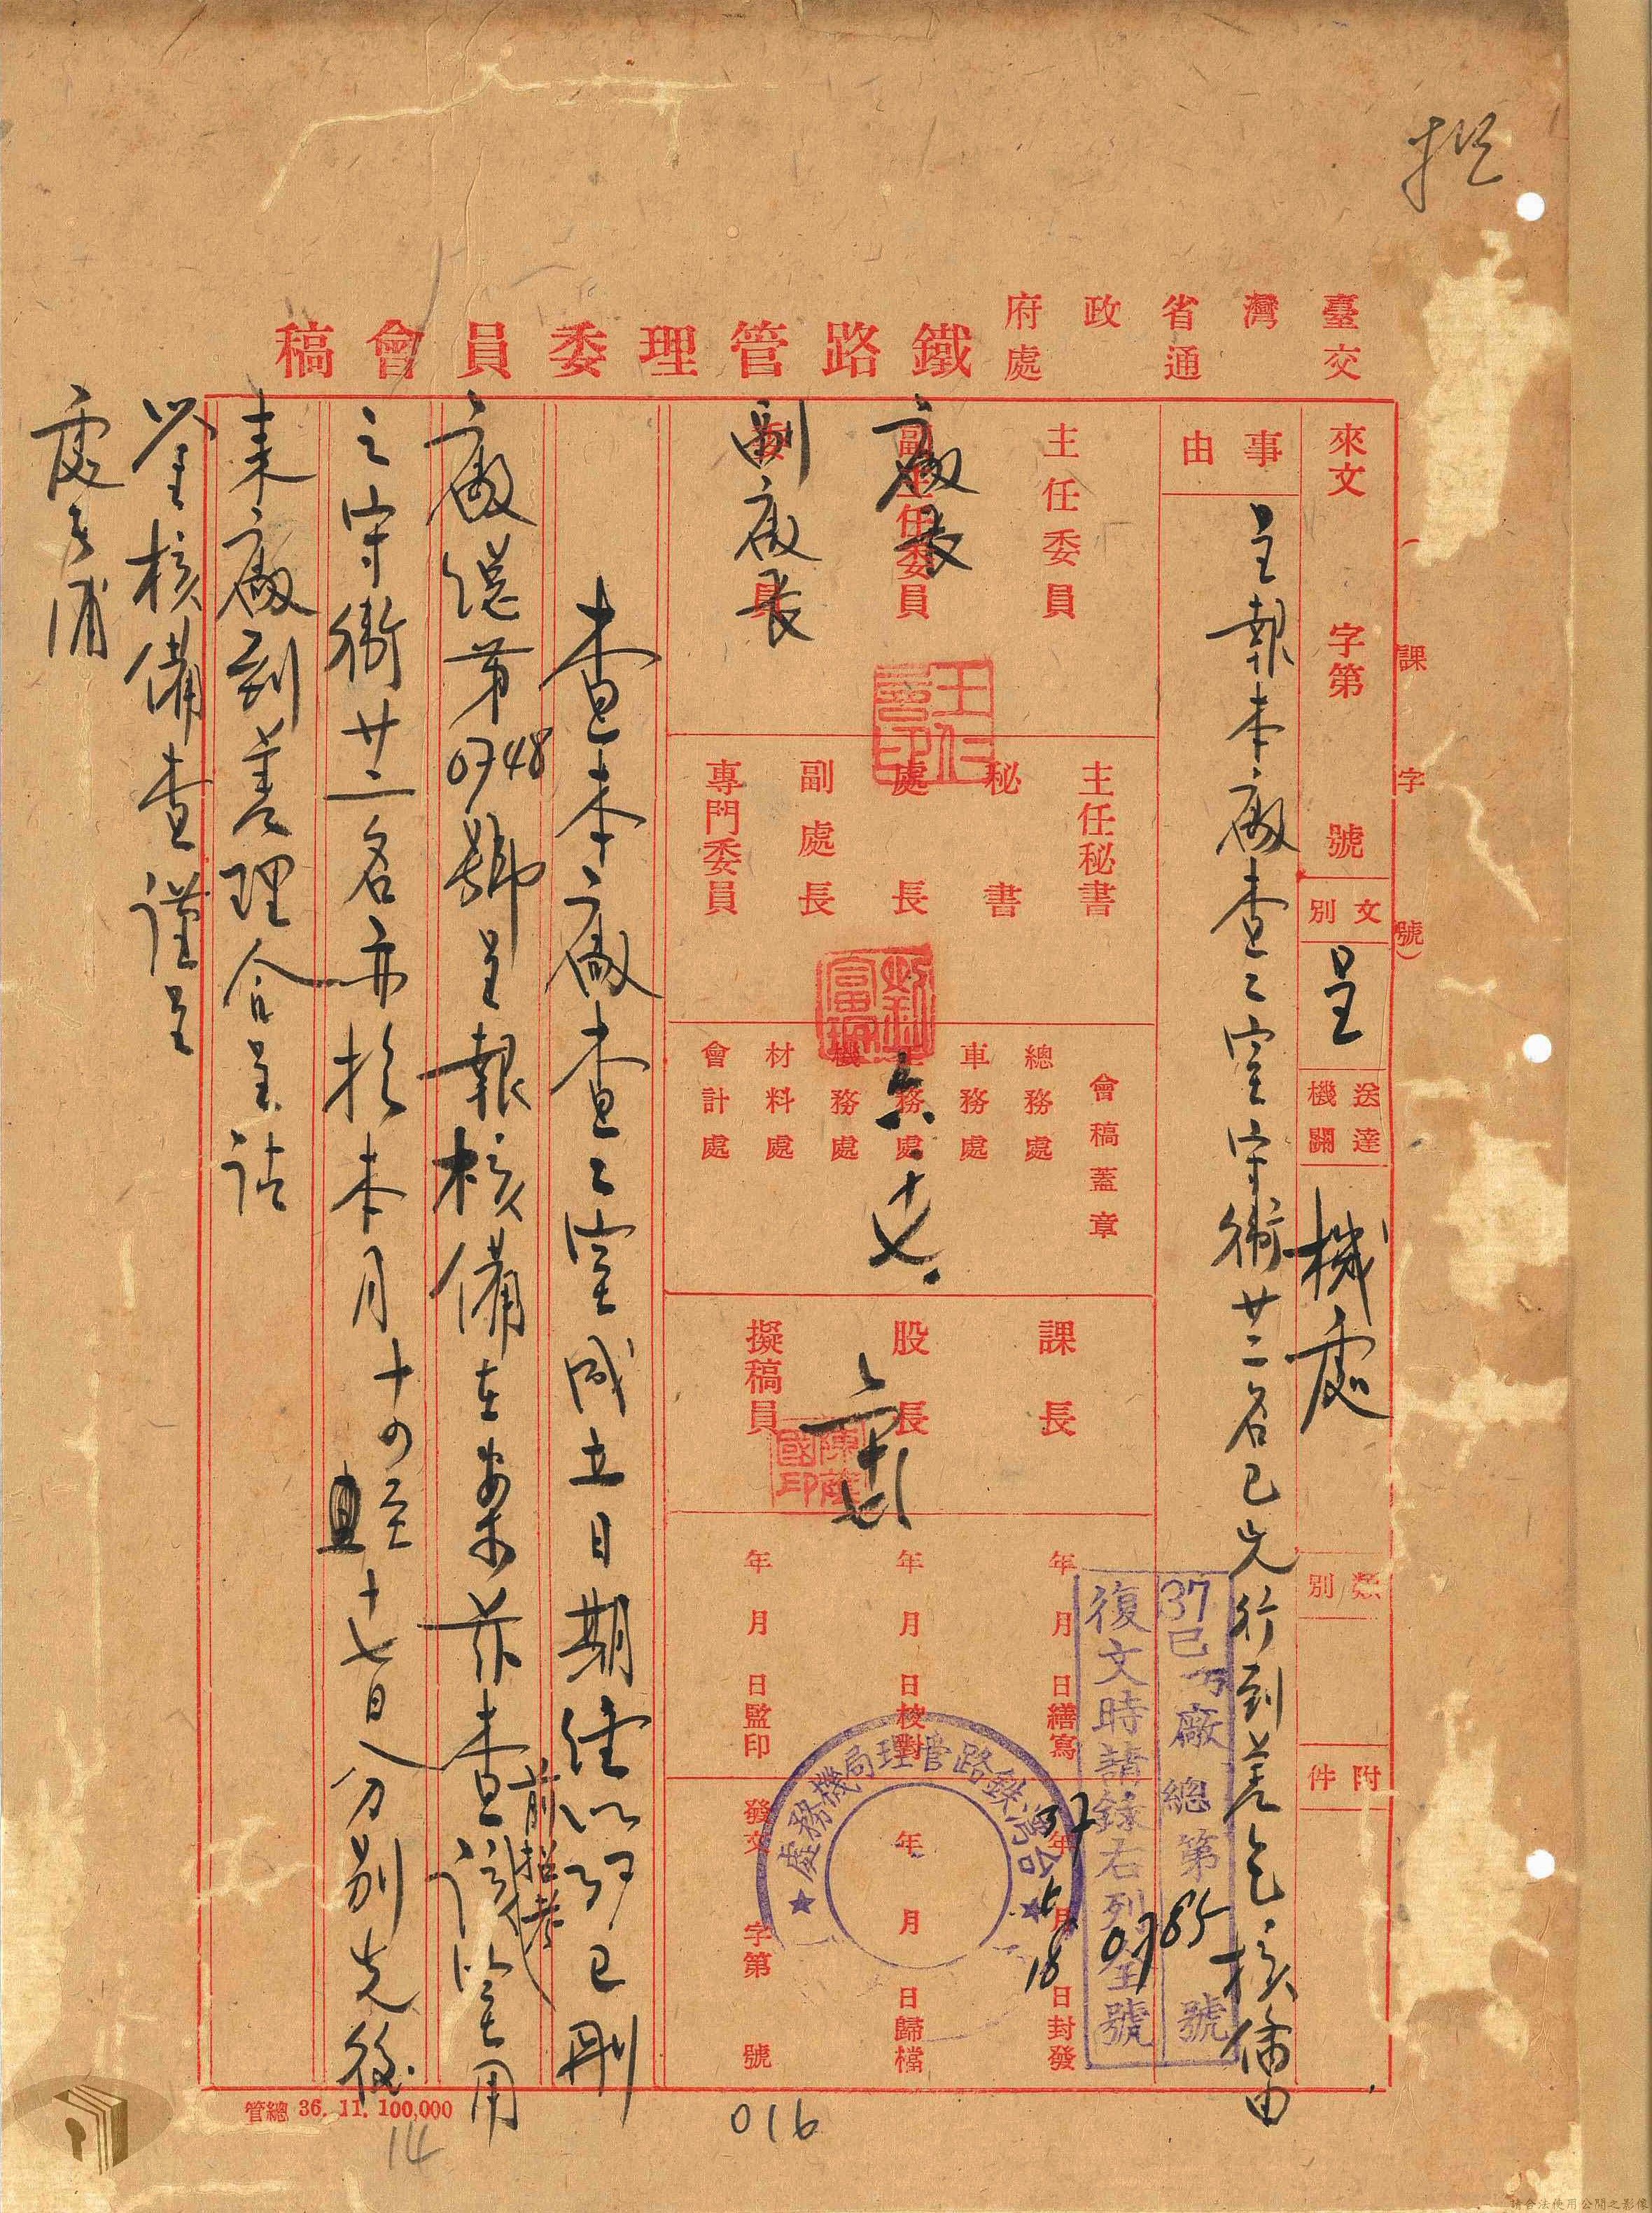 臺灣省政府
交通處
鐵路管理委員會稿
課字號)
來文 字第 號
文別 呈
送達機關 機處
類別
附件
事由
呈報本廠查工室守衛廿二名已先行到差乞核備由
主任委員
副主任委員
廠長
副廠長
主任秘書
秘書
處長
副處長
專門委員
會稿蓋章
總務處
車務處
機務處
材料處
會計處
六.十七.
課長
股長
擬稿員
年月日繕寫
年月日校對
年月日監印
年月日封發
年月日歸檔
發文 字第 號
37 6 18
37已 廠總第0785號
復文時請錄右列全號
台灣鉄路管理局機務處
查本廠查工室成立日期經以 已剛
廠總第0748號呈報核備在案茲查該室用
前招考
之守衛廿二名亦於本月十四至十七日分別先後
來廠到差理合呈請
鑒核備查謹呈
處長浦
管總 36. 11. 100,000
14
016
請合法使用公開之影像